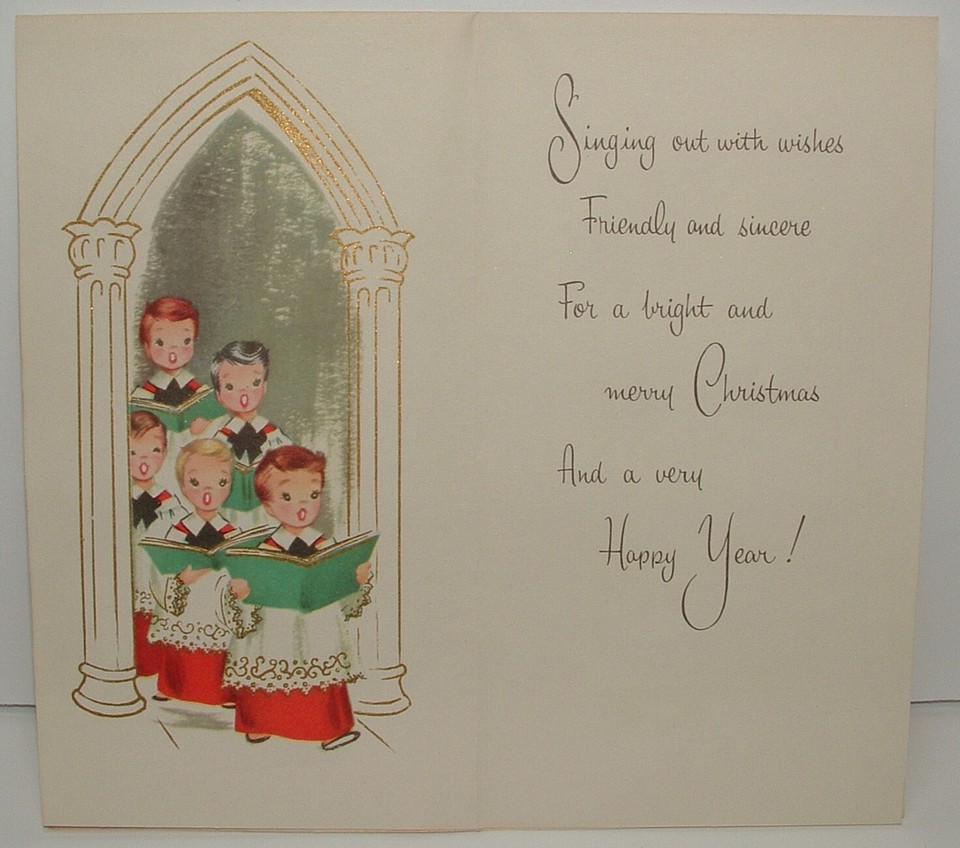 Singing out with wishes
Friendly and sincere
For a bright and
merry Christmas
And a very
Happy Year!